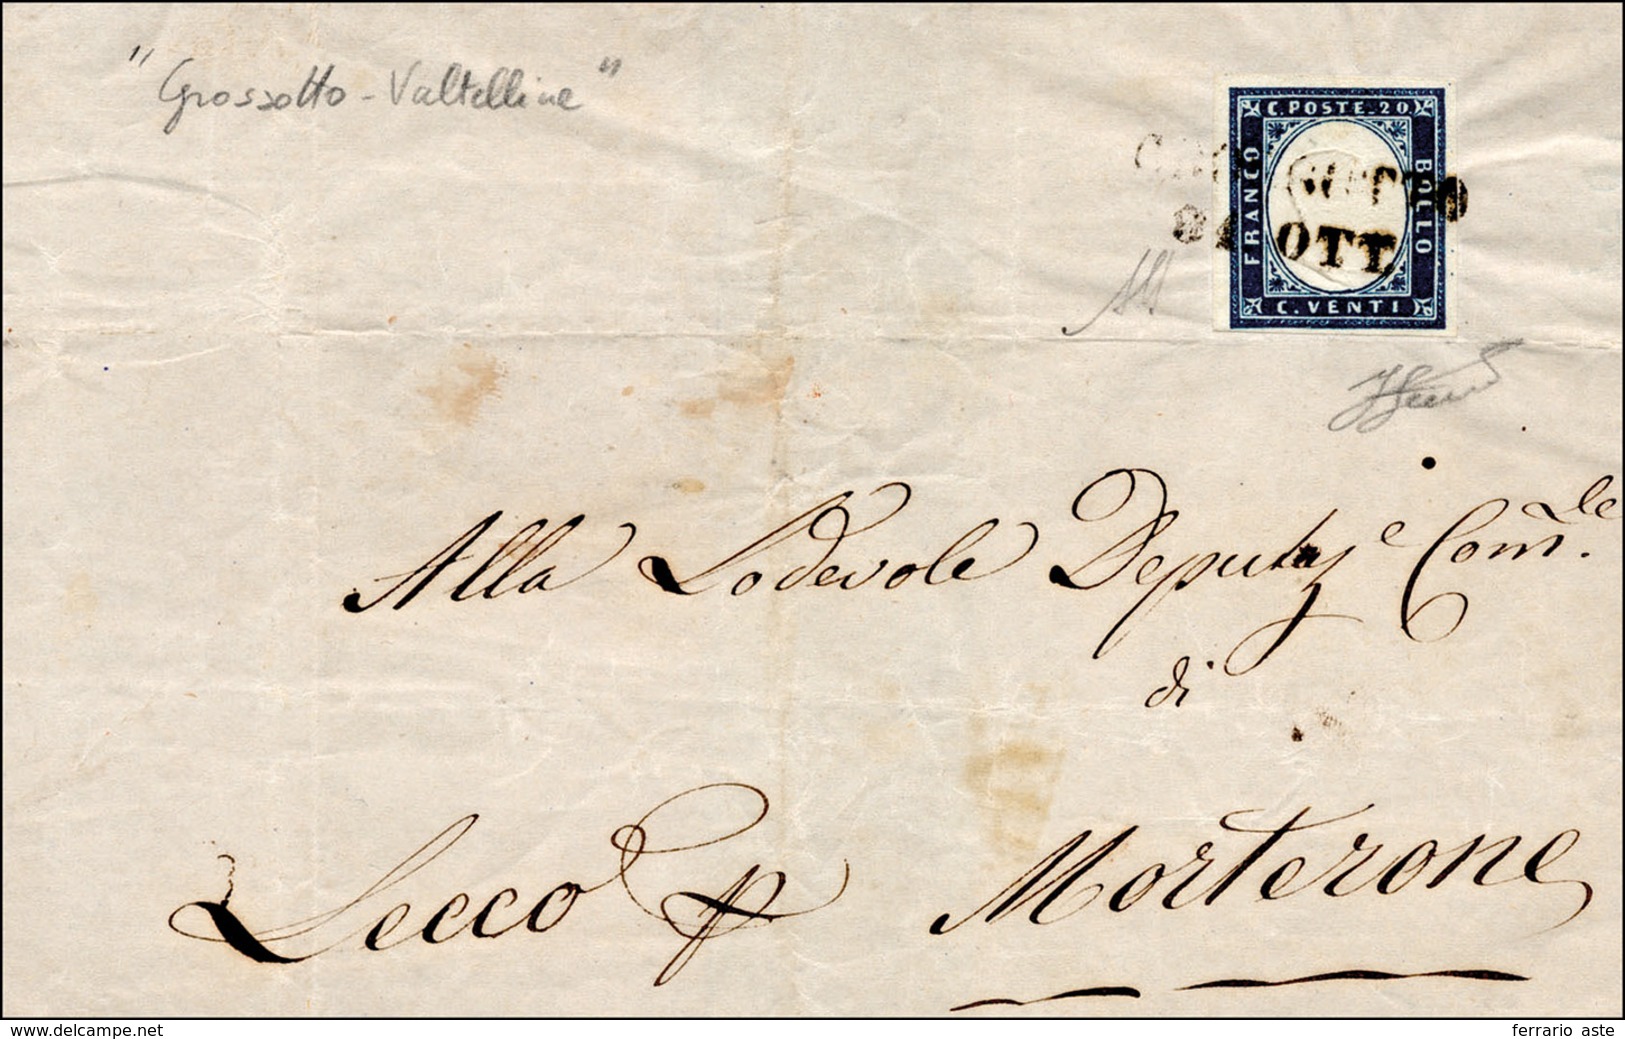 "Grossotto - Valtelline"
C. POSTE. 20.
FRANCO
BOLLO
C. VENTI
OTT.
Alla Lodevole Deputaz.e Com.le
di
Lecco p Morterone
www.delcampe.net
ferrario aste